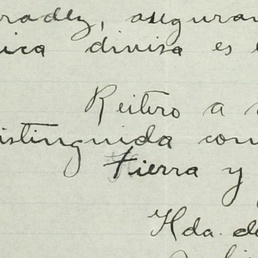 radez, aseguran
ica divisa es e
Reitero a
istinguida con
Tierra y
Hda. de